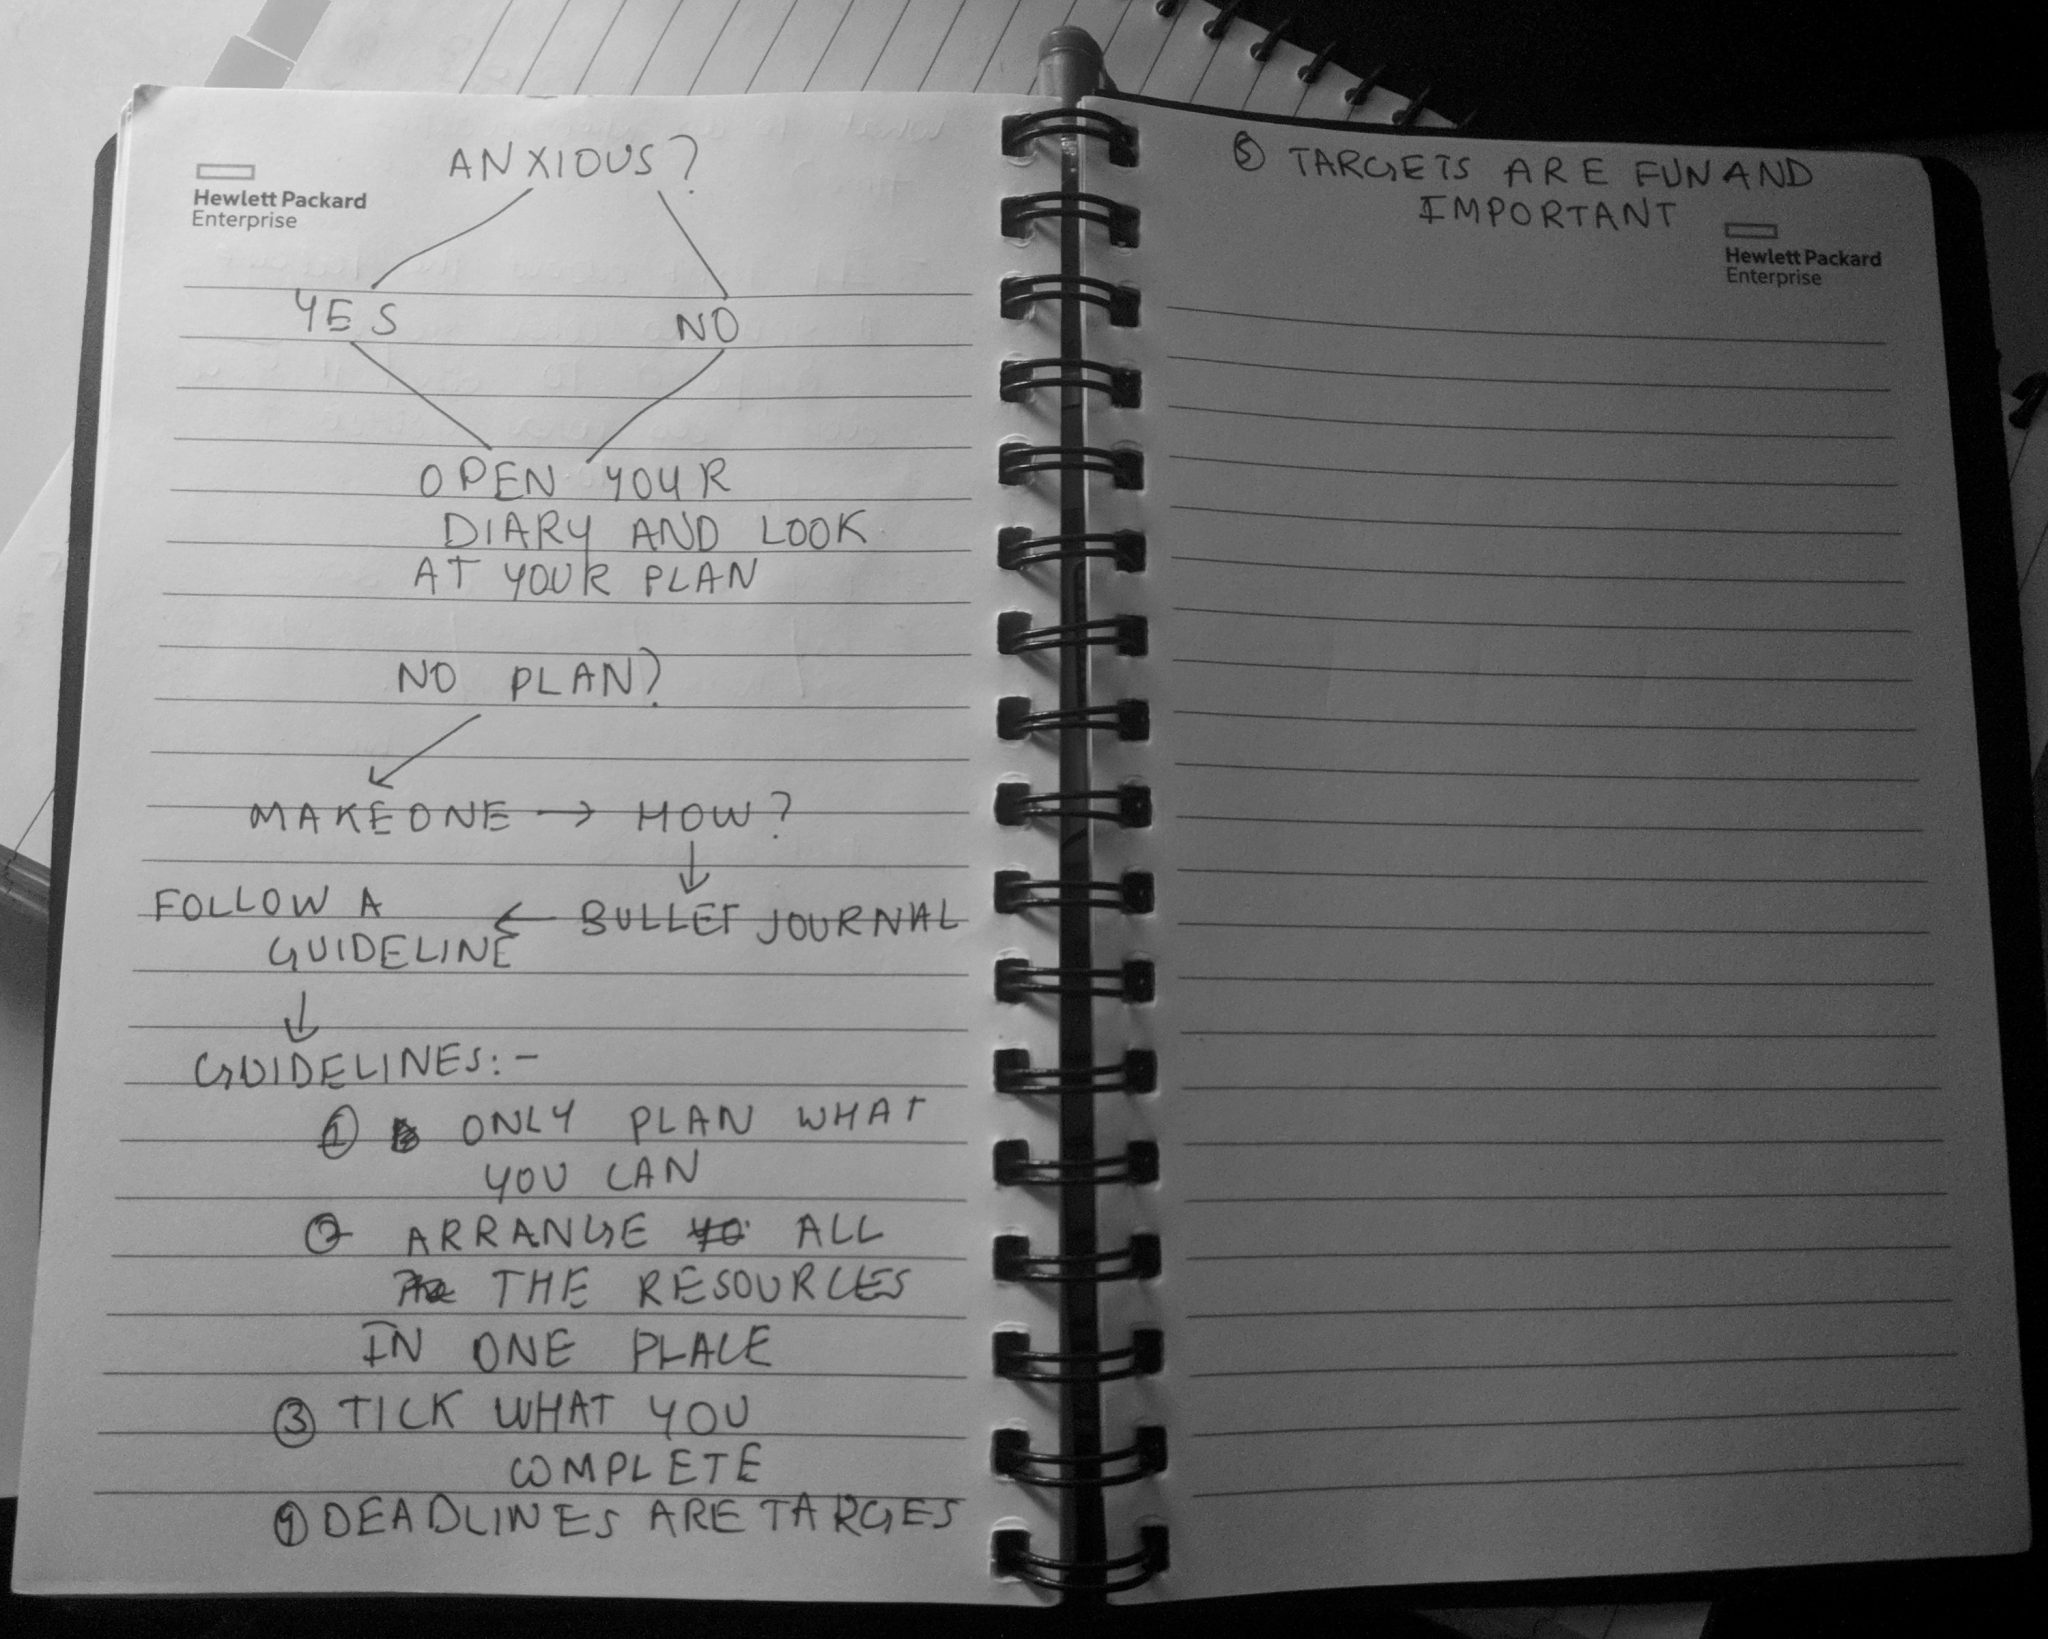 Hewlett Packard
Enterprise
ANXIOUS?
YES
NO
OPEN YOUR
DIARY AND LOOK
AT YOUR PLAN
NO PLAN?
MAKE ONE → HOW?
FOLLOW A
GUIDELINE
← BULLET JOURNAL
GUIDELINES:-
① ONLY PLAN WHAT
YOU CAN
② ARRANGE ALL
THE RESOURCES
IN ONE PLACE
③ TICK WHAT YOU
COMPLETE
④ DEADLINES ARE TARGES
⑤ TARGETS ARE FUN AND
IMPORTANT
Hewlett Packard
Enterprise